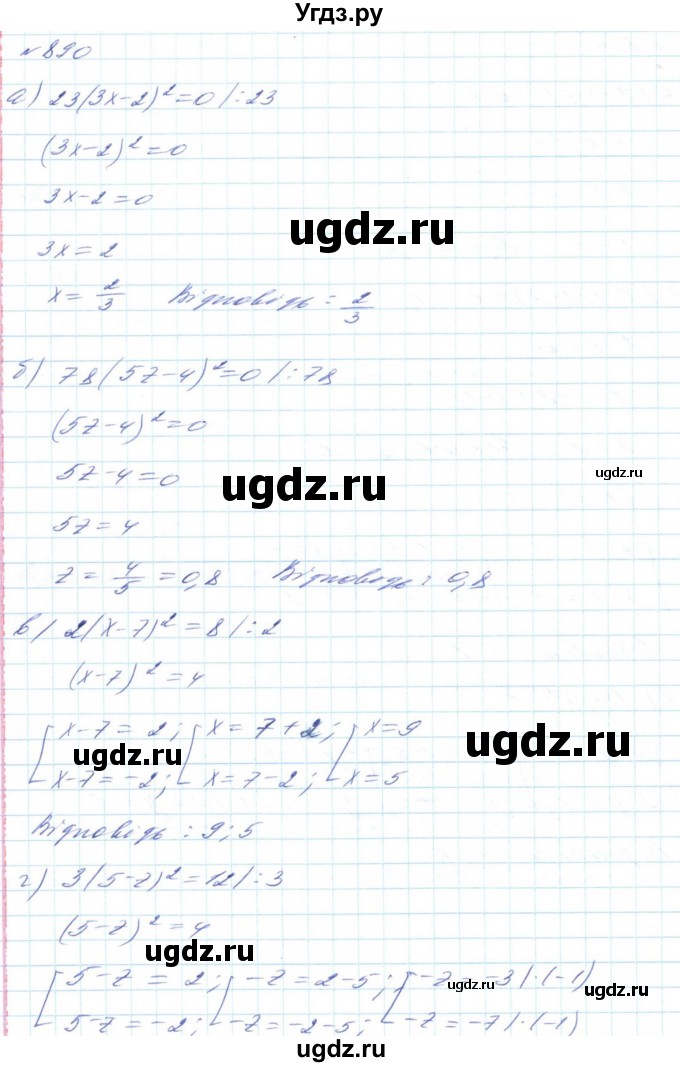 Угдз.ру
№890
а) 23(3x-2)²=0 /:23
(3x-2)²=0
3x-2=0
ugdz.ru
3x=2
x=2/3 Відповідь: 2/3
б) 78(5z-4)²=0 /:78
(5z-4)²=0
5z-4=0
ugdz.ru
ugdz.ru
5z=4
z=4/5=0,8 Відповідь: 0,8
в) 2(x-7)²=8 /:2
(x-7)²=4
[x-7=2; [x=7+2; [x=9
ugdz.ru
ugdz.ru
x-7=-2; x=7-2; x=5
Відповідь: 9; 5
г) 3(5-z)²=12 /:3
(5-z)²=4
ugdz.ru
[5-z=2; [-z=2-5; [-z=-3 /·(-1)
ugdz.ru
ugdz.ru
5-z=-2; -z=-2-5; -z=-7 /·(-1)
ugdz.ru